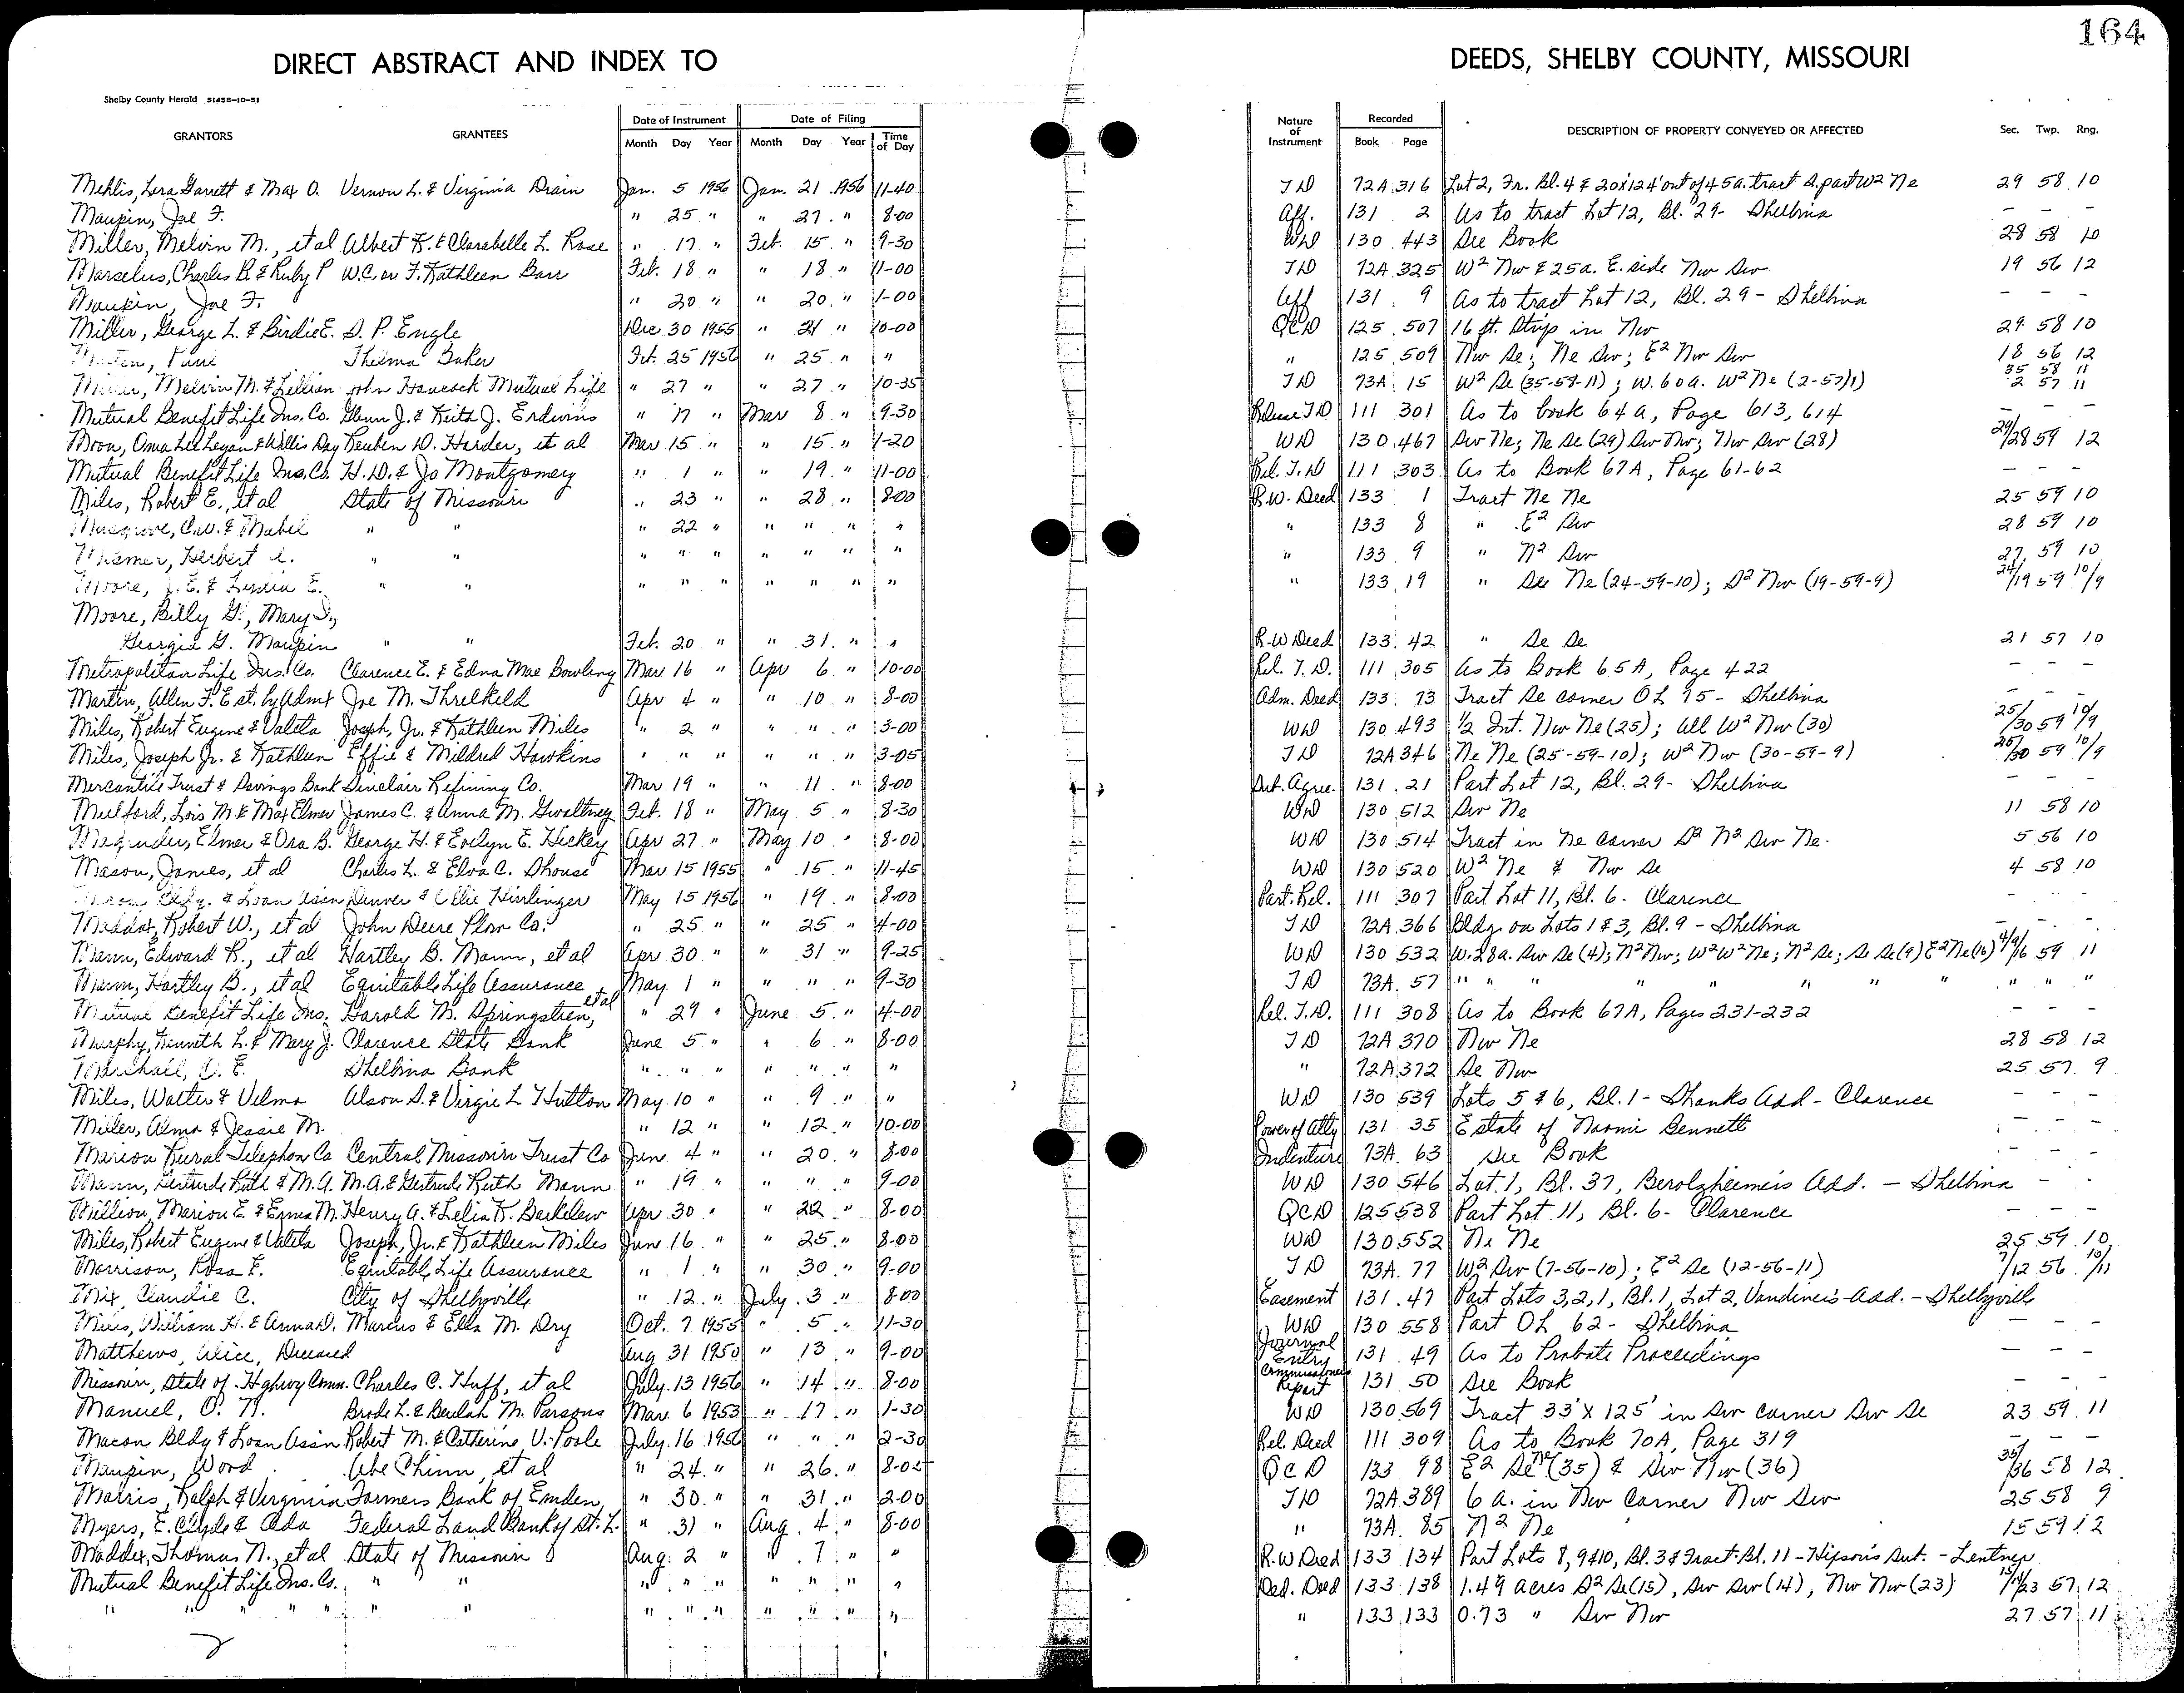 164
DIRECT ABSTRACT AND INDEX TO DEEDS, SHELBY COUNTY, MISSOURI
Shelby County Herald 51458-10-51
GRANTORS GRANTEES Date of Instrument Month Day Year Date of Filing Month Day Year Time of Day Nature of Instrument Recorded Book Page DESCRIPTION OF PROPERTY CONVEYED OR AFFECTED Sec. Twp. Rng.
Mehlis, Lora Garrett & Max O. Vernon L. & Virginia Drain Jan. 5 1956 Jan. 21 1956 11-40 TD 72A 316 Lot 2, Fr. Bl. 4 & 20'x124' out of 45a. tract S. part W2 Ne 29 58 10
Maupin, Joe F. " 25 " " 27 " 8-00 Aff. 131 2 As to tract Lot 12, Bl. 29- Shelbina - - -
Miller, Melvin M., et al Albert K. & Clarabelle L. Rose " 17 " Feb. 15 " 9-30 WD 130 443 See Book 28 58 10
Marselus, Charles B. & Ruby P W.C. or F. Kathleen Barr Feb. 18 " " 18 " 11-00 TD 72A 325 W2 Nw & 25a. E. side Nw Sw 19 56 12
Maupin, Joe F. " 20 " " 20 " 1-00 Aff 131 9 As to tract Lot 12, Bl. 29- Shelbina - - -
Miller, George L. & Birdie E. S. P. Engle Dec 30 1955 " 21 " 10-00 QCD 125 507 16 ft. Strip in Nw 29 58 10
Paul Thelma Baker Feb. 25 1956 " 25 " " " 125 509 Nw Se; Ne Sw; E2 Nw Sw 18 56 12
Miller, Melvin M. & Lillian John Hancock Mutual Life " 27 " " 27 " 10-35 TD 73A 15 W2 Se (35-58-11); W. 60a. W2 Ne (2-57-11) 35 58 11 2 57 11
Mutual Benefit Life Ins. Co. Glenn J. & Keith J. Erdwins " 17 " Mar 8 " 9-30 Release TD 111 301 As to book 64A, Page 613, 614 - - -
Moon, Oma Lee Logan & Willis Day Reuben D. Harder, et al Mar 15 " " 15 " 1-20 WD 130 467 Sw Ne; Ne Se (29) Sw Nw; Nw Sw (28) 29/28 59 12
Mutual Benefit Life Ins. Co. H. D. & Jo Montgomery " 1 " " 19 " 11-00 Rel. T.D 111 303 As to Book 67A, Page 61-62 - - -
Miles, Robert E., et al State of Missouri " 23 " " 28 " 8-00 R.W. Deed 133 1 Tract Ne Ne 25 59 10
Musgrove, C.W. & Mabel " " " 22 " " " " " " 133 8 " E2 Sw 28 59 10
Herbert " " " " " " " " " " 133 9 " N2 Sw 27 59 10
Moore, J. E. & Lydia E. " " " " " " " " " " 133 19 " Se Ne (24-59-10); S2 Nw (19-59-9) 24/19 59 10/9
Moore, Billy G., Mary S.,
Georgia G. Maupin " " Feb. 20 " " 31 " " R.W Deed 133 42 " Se Se 21 57 10
Metropolitan Life Ins. Co. Clarence E. & Edna Mae Bowling Mar 16 " Apr 6 " 10-00 Rel. T.D. 111 305 As to Book 65A, Page 422 - - -
Martin, Allen F. Est. by Admx Joe M. Threlkeld Apr 4 " " 10 " 8-00 Adm. Deed 133 73 Tract Se corner OL 75- Shelbina - - -
Miles, Robert Eugene & Valeta Joseph, Jr. & Kathleen Miles " 2 " " " " 3-00 WD 130 493 1/2 Int. Nw Ne (25); All W2 Nw (30) 25/30 59 10/9
Miles, Joseph Jr. & Kathleen Effie & Mildred Hawkins " " " " " " 3-05 TD 72A 346 Ne Ne (25-59-10); W2 Nw (30-59-9) 25/30 59 10/9
Mercantile Trust & Savings Bank Sinclair Refining Co. Mar. 19 " " 11 " 8-00 Sub. Agree. 131 21 Part Lot 12, Bl. 29- Shelbina - - -
Mulford, Lois M. & Max Elmer James C. & Anna M. Gwaltney Feb. 18 " May 5 " 8-30 WD 130 512 Sw Ne 11 58 10
Magruder, Elmer & Ora B. George H. & Evelyn E. Hickey Apr 27 " May 10 " 8-00 WD 130 514 Tract in Ne corner S2 N2 Sw Ne. 5 56 10
Mason, James, et al Charles L. & Elva C. Shouse Mar. 15 1955 " 15 " 11-45 WD 130 520 W2 Ne & Nw Se 4 58 10
Macon Bldg. & Loan Assn Denver & Ollie Hirrlinger May 15 1956 " 19 " 8-00 Part. Rel. 111 307 Part Lot 11, Bl. 6- Clarence - -
Maddox, Robert W., et al John Deere Plow Co. " 25 " " 25 " 4-00 TD 72A 366 Bldg. on Lots 1 & 3, Bl. 9 - Shelbina - - -
Mann, Edward R., et al Hartley B. Mann, et al Apr 30 " " 31 " 9-25 WD 130 532 W. 28a. Sw Se (4); N2 Nw; W2 W2 Ne; N2 Se; Se Se (9) E2 Ne (16) 4/9/16 59 11
Mann, Hartley B., et al Equitable Life Assurance May 1 " " " " 9-30 TD 73A 57 " " " " " " " " " "
Mutual Benefit Life Ins. Harold M. Springsteen, et al " 29 " June 5 " 4-00 Rel. T.D. 111 308 As to Book 67A, Pages 231-232 - - -
Murphy, Kenneth L. & Mary J. Clarence State Bank June 5 " " 6 " 8-00 TD 72A 370 Nw Ne 28 58 12
Marshall, O. E. Shelbina Bank " " " " " " " " 72A 372 Se Nw 25 57 9
Miles, Walter & Velma Alson S. & Virgie L Hutton May 10 " " 9 " " WD 130 539 Lots 5 & 6, Bl. 1 - Shanks Add - Clarence - - -
Miller, Alma & Jessie M. " 12 " " 12 " 10-00 Power of Atty 131 35 Estate of Naomi Bennett - - -
Marion Rural Telephon Co Central Missouri Trust Co June 4 " " 20 " 8-00 Indenture 73A 63 See Book - - -
Mann, Gertrude Ruth & M.A. M.A. & Gertrude Ruth Mann " 19 " " " " 9-00 WD 130 546 Lot 1, Bl. 37, Berolzheimer's Add. - Shelbina - -
Million, Marion E. & Erma M. Henry A. & Lelia K. Barkelew Apr 30 " " 22 " 8-00 QCD 125 538 Part Lot 11, Bl. 6- Clarence - - -
Miles, Robert Eugene & Valeta Joseph, Jr. & Kathleen Miles June 16 " " 25 " 8-00 WD 130 552 Ne Ne 25 59 10
Morrison, Rosa F. Equitable Life Assurance " 1 " " 30 " 9-00 TD 73A 77 W2 Sw (7-56-10); E2 Se (12-56-11) 7/12 56 10/11
Mix, Claudie C. City of Shelbyville " 12 " July 3 " 8-00 Easement 131 47 Part Lots 3, 2, 1, Bl. 1, Lot 2, Vandiver's Add. - Shelbyville
William H. & Anna D. Marcus & Ella M. Dry Oct. 7 1955 " 5 " 11-30 WD 130 558 Part OL 62- Shelbina - - -
Matthews, Alice, Deceased Aug 31 1950 " 13 " 9-00 Journal Entry 131 49 As to Probate Proceedings - - -
Missouri, State of Highway Comm. Charles C. Huff, et al July 13 1956 " 14 " 8-00 Commissioners Report 131 50 See Book - - -
Manuel, O. N. Brode L. & Beulah M. Parsons Mar. 6 1953 " 17 " 1-30 WD 130 569 Tract 33' X 125' in Sw corner Sw Se 23 59 11
Macon Bldg & Loan Assn Robert M. & Catherine V. Poole July 16 1956 " " " 2-30 Rel. Deed 111 309 As to Book 70A, Page 319 - - -
Maupin, Word Abe Chinn, et al " 24 " " 26 " 8-05 QCD 133 98 E2 Se Ne (35) & Sw Nw (36) 35/36 58 12
Morris, Ralph & Virginia Farmers Bank of Emden " 30 " " 31 " 2-00 TD 72A 389 6 a. in Nw Corner Nw Sw 25 58 9
Myers, E. Clyde & Ada Federal Land Bank of St. L. " 31 " Aug. 4 " 8-00 " 73A 85 N2 Ne 15 59 12
Maddex, Thomas N., et al State of Missouri Aug. 2 " " 7 " " R.W Deed 133 134 Part Lots 8, 9 & 10, Bl. 3 & Tract Bl. 11 - Hipson's Sub. - Lentner
Mutual Benefit Life Ins. Co. " " " " " " " " " Ded. Deed 133 138 1.49 acres S2 Se (15), Sw Sw (14), Nw Nw (23) 15/14/23 57 12
" " " " " " " " " " " " " " 133 133 0.73 " Sw Nw 27 57 11